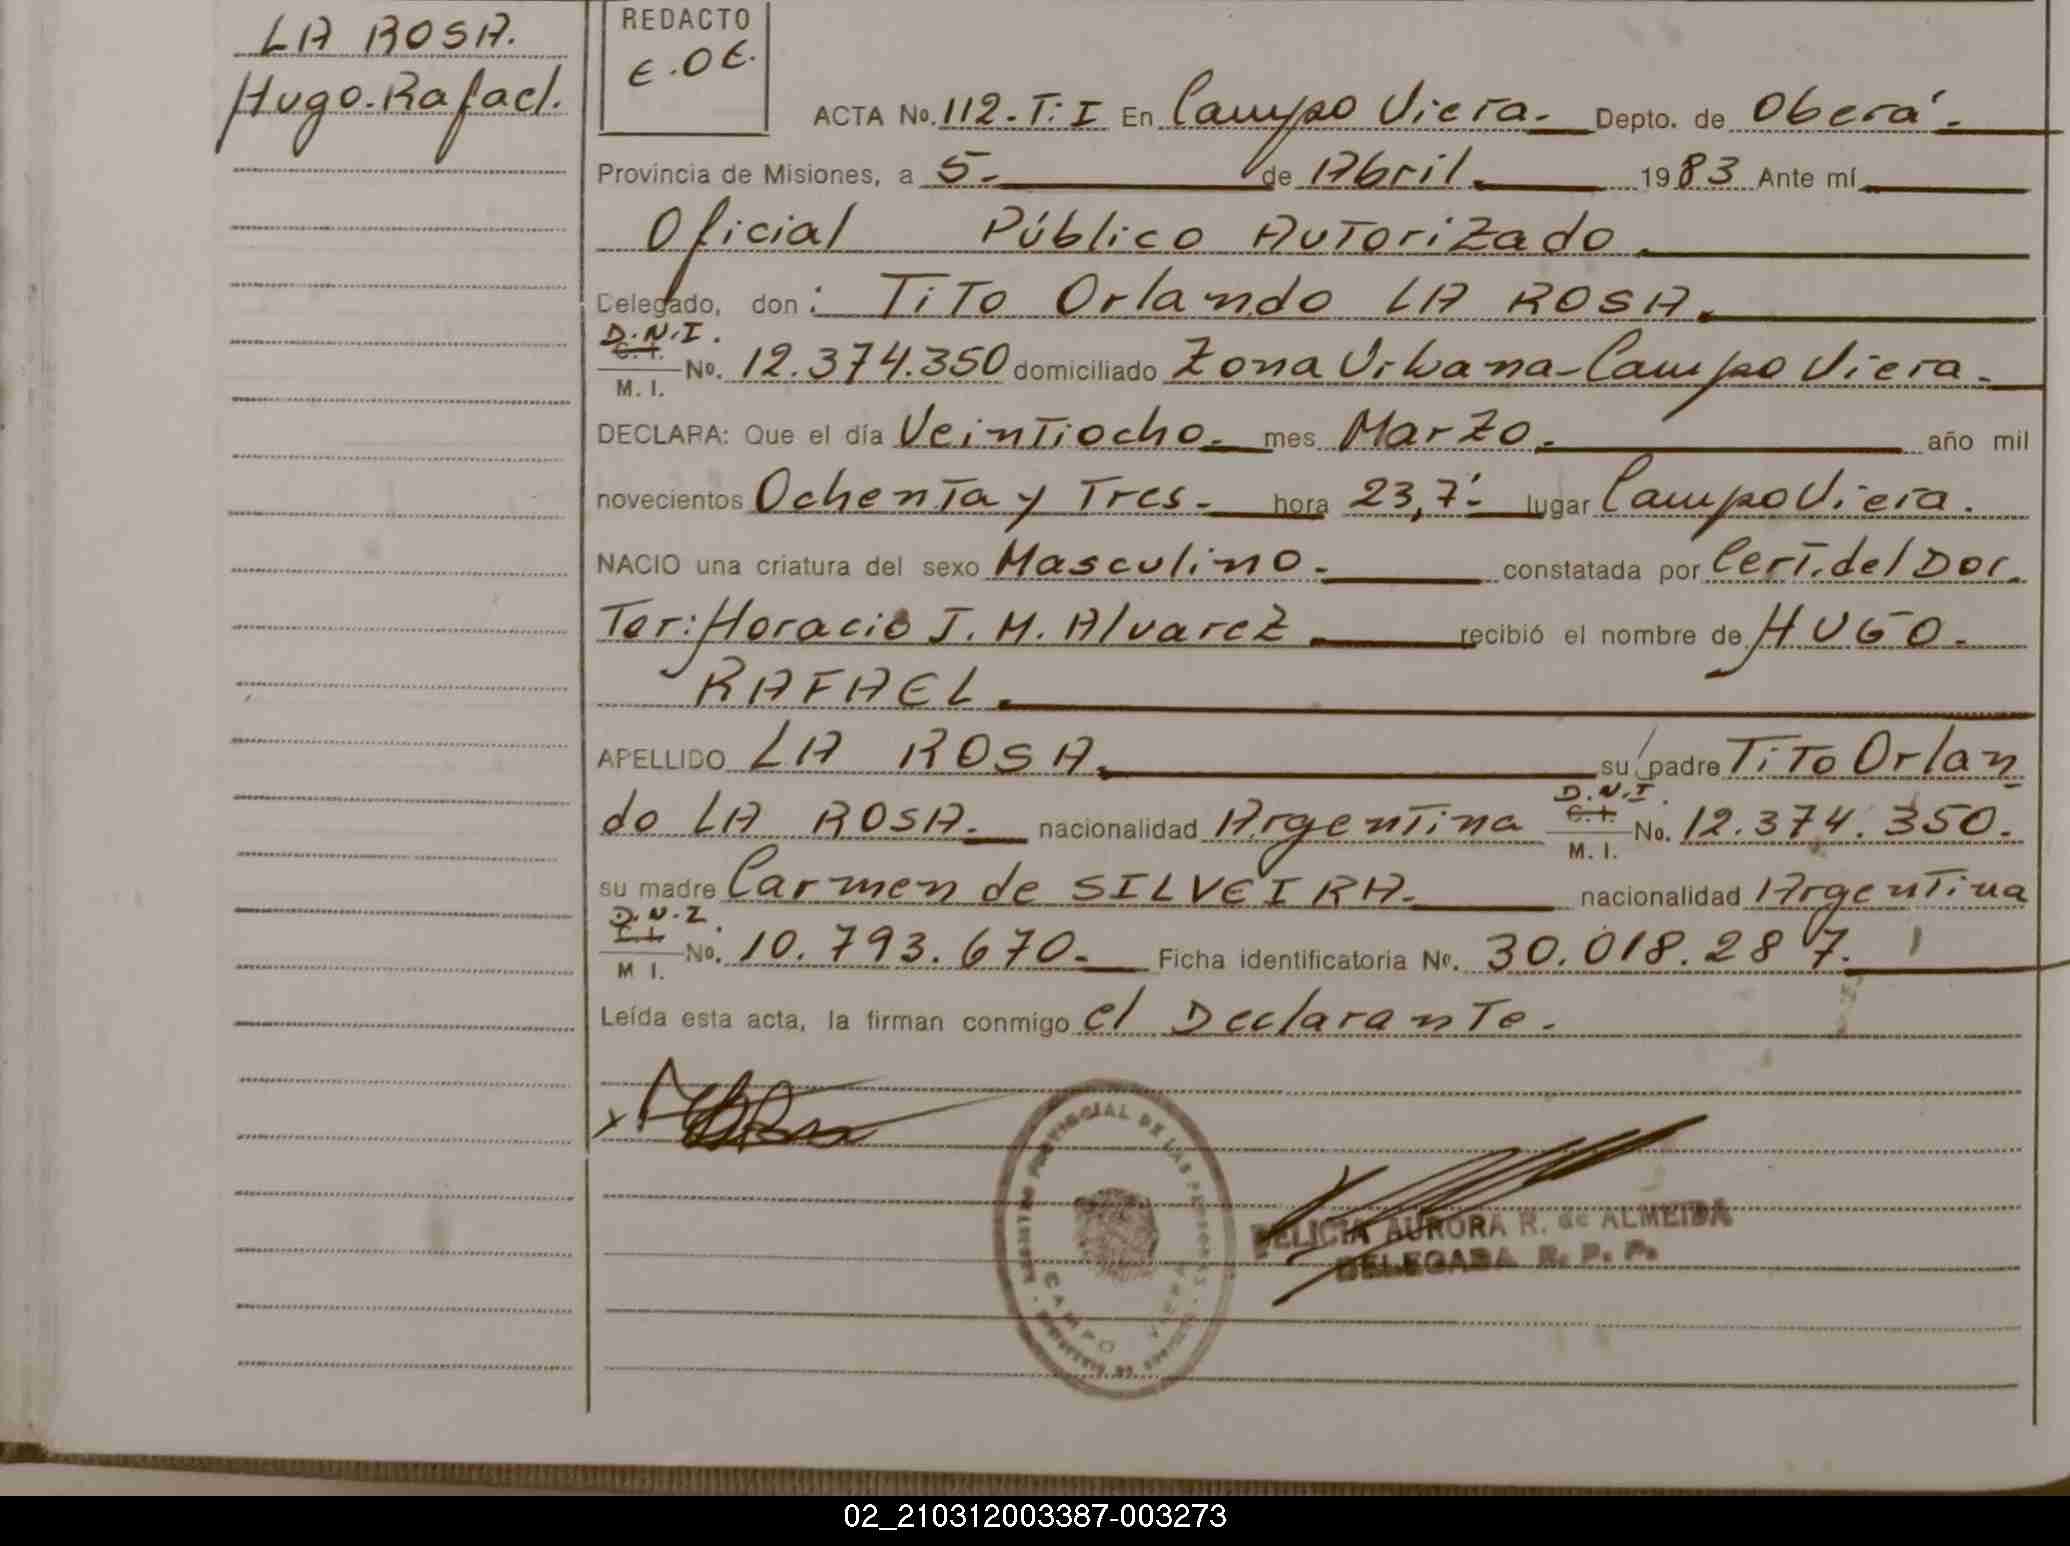 LA ROSA.
Hugo.Rafael.
REDACTO
E.OE.
ACTA No. 112-T:I En Campo Viera- Depto. de Oberá-
Provincia de Misiones, a 5- de Abril. 1983 Ante mí
Oficial Público Autorizado.
Delegado, don: Tito Orlando LA ROSA.
D.N.I.
C.I.
M. I.
No. 12.374.350 domiciliado Zona Urbana-Campo Viera-
DECLARA: Que el día Veintiocho- mes Marzo- año mil
novecientos Ochenta y Tres- hora 23,7'- lugar Campo Viera.
NACIO una criatura del sexo Masculino- constatada por Cert.del Doc.
Tor:Horacio J. M. Alvarez recibió el nombre de HUGO-
RAFAEL.
APELLIDO LA ROSA. su padre Tito Orlan
do LA ROSA- nacionalidad Argentina D.N.I. C.I. M. I. No. 12.374.350.
su madre Carmen de SILVEIRA- nacionalidad Argentina
D.N.I.
C.I.
M I.
No. 10.793.670- Ficha identificatoria No. 30.018.287.
Leída esta acta, la firman conmigo el Declarante.
REGISTRO PROVINCIAL DE LAS PERSONAS
CAMPO VIERA
FELICIA AURORA R. de ALMEIDA
DELEGADA R. P. P.
02_210312003387-003273